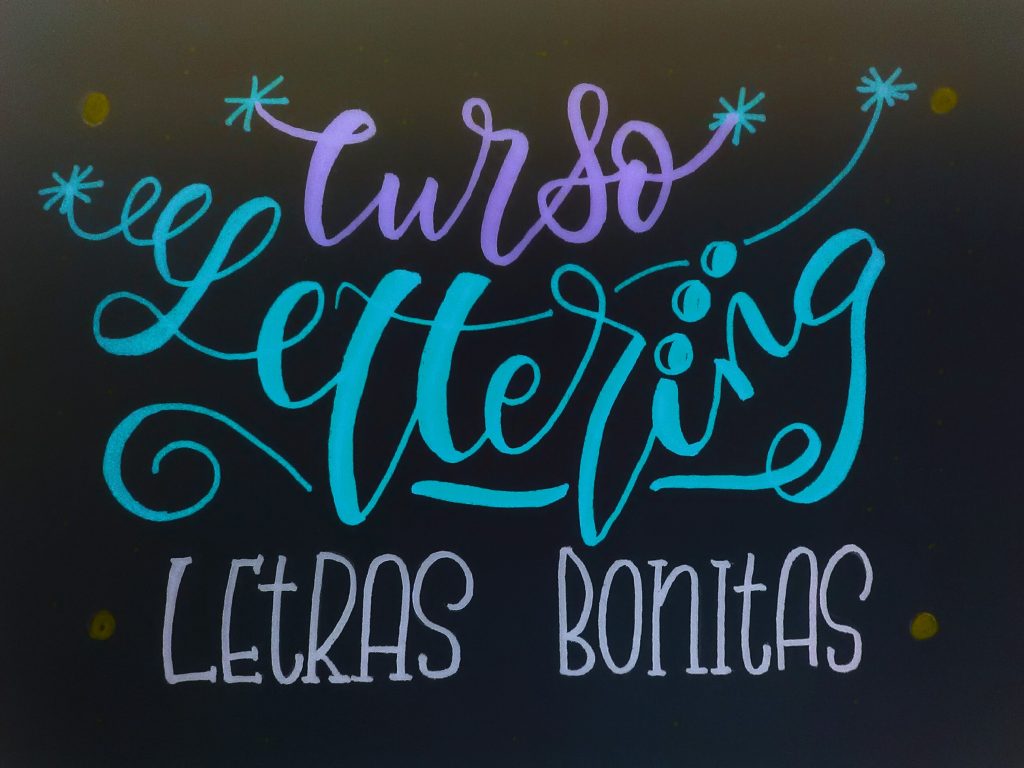 Curso
Lettering
LETRAS BONITAS